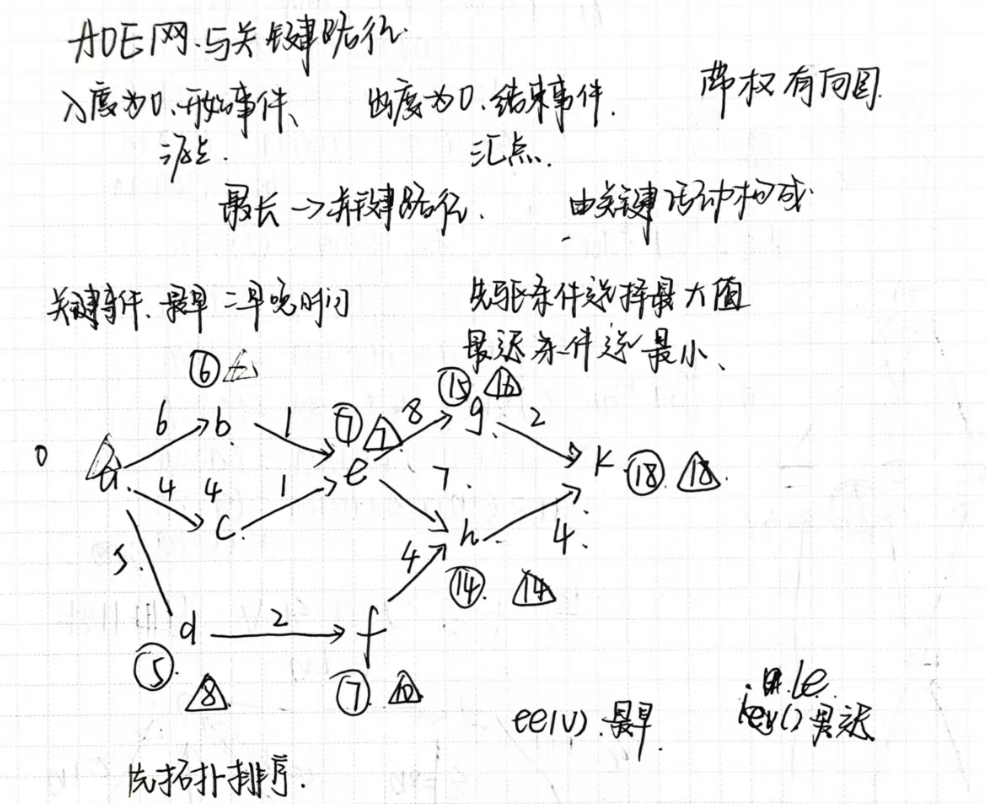 AOE网与关键路径
入度为0.开始事件、 出度为0.结束事件. 带权有向图.
源点. 汇点.
最长→关键路径. 由关键活动构成
关键事件.最早二早晚时间 先驱条件选择最大值
最迟条件选最小、
⑥ 6 ⑮ 16
6 b. 1 ⑦ 7 8 g. 2
0 a. 4 4 1 e 7. K ⑱ 18.
C. h. 4.
5. 4 ⑭. 14
d 2 f
⑤. 8 ⑦ 10
ee(v).最早 le
lev()最迟
先拓扑排序.